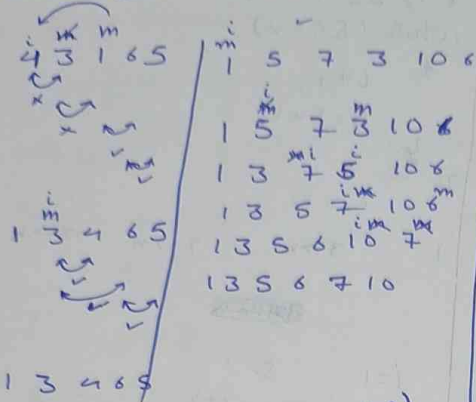 i m m
4 3 1 6 5
i
m
1 3 4 6 5
1 3 4 6 5
i
m
1 5 7 3 10 6
i
m m
1 5 7 3 10 6
m i i
1 3 7 5 10 6
i m m
1 3 5 7 10 6
i m m
1 3 5 6 10 7
1 3 5 6 7 10